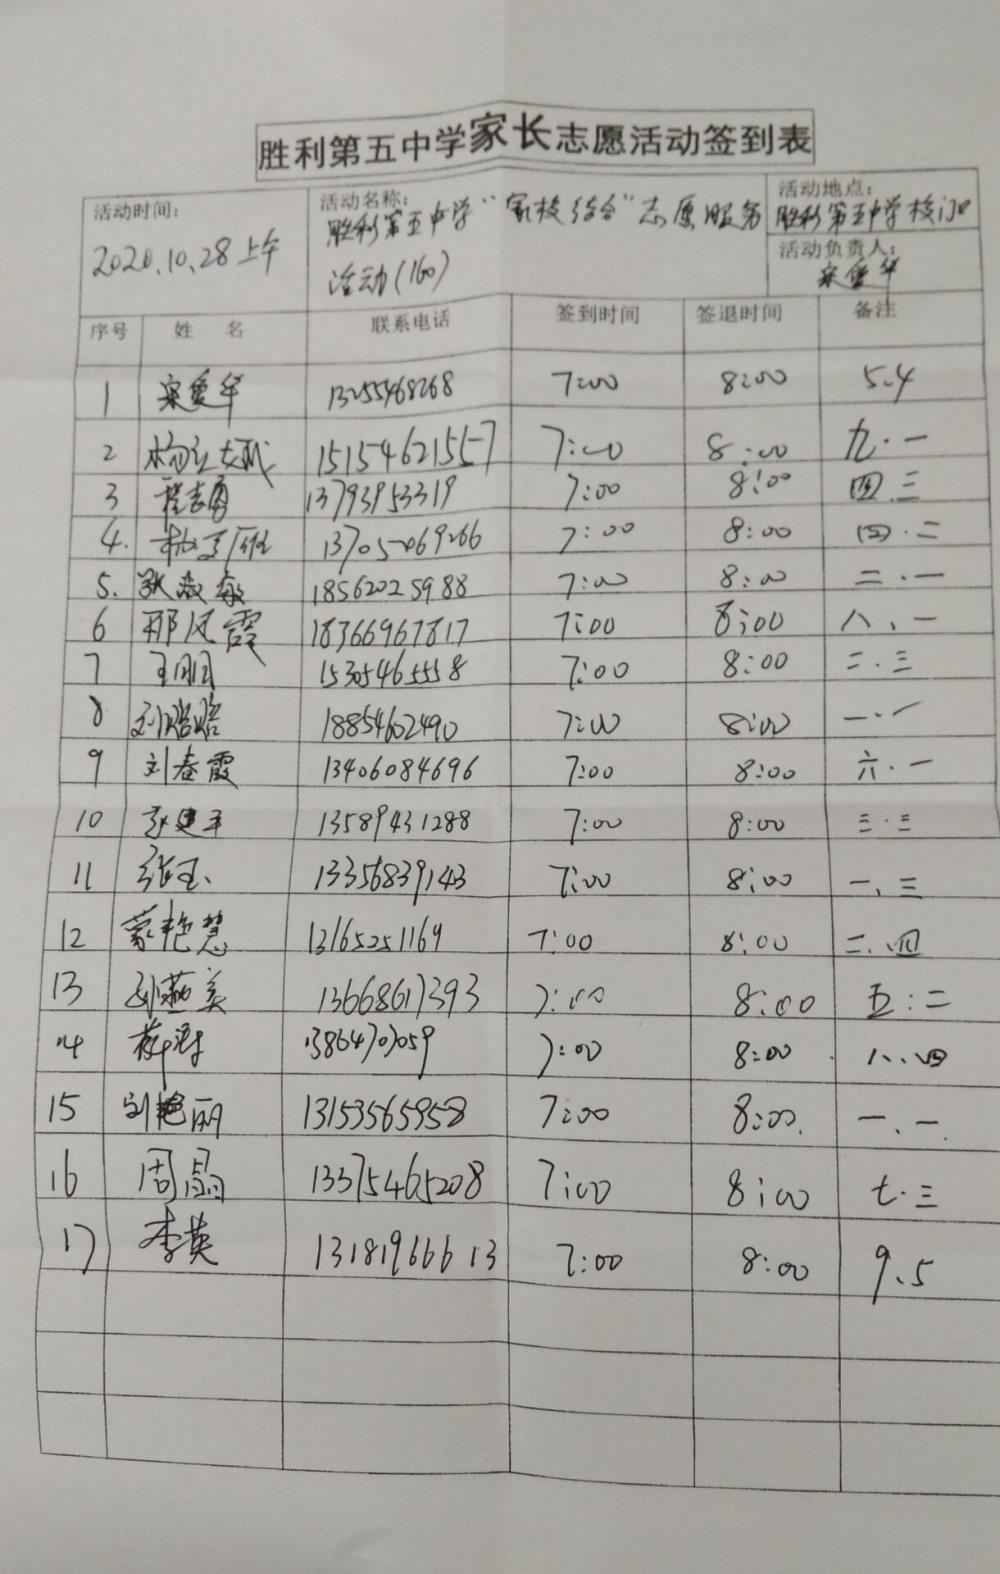 胜利第五中学家长志愿活动签到表
活动时间: 活动名称: 活动地点:
2020.10.28上午 胜利第五中学“家校结合”志愿服务 胜利第五中学校门口
活动(160) 活动负责人: 宋爱华
序号 姓 名 联系电话 签到时间 签退时间 备注
1 宋爱华 13255468268 7:00 8:00 5.4
2 15154621557 7:00 8:00 九.一
3 程志勇 13793953319 7:00 8:00 四.三
4. 13705069266 7:00 8:00 四.二
5. 18562025988 7:00 8:00 二.一
6 邢凤霞 18366967817 7:00 8:00 八、一
7 王明月 15305465558 7:00 8:00 二.三
8 刘晗晗 18854602490 7:00 8:00 一.一
9 刘春霞 13406084696 7:00 8:00 六.一
10 13589431288 7:00 8:00 三.三
11 张玉 13356839143 7:00 8:00 一、三
12 蒙艳慧 13165251169 7:00 8:00 二、四
13 13668617393 7:00 8:00 五:二
14 13864707059 7:00 8:00 八、四
15 刘艳丽 13153565958 7:00 8:00. 一、一
16 周晶 13375465208 7:00 8:00 七.三
17 李英 13181966613 7:00 8:00 9、5